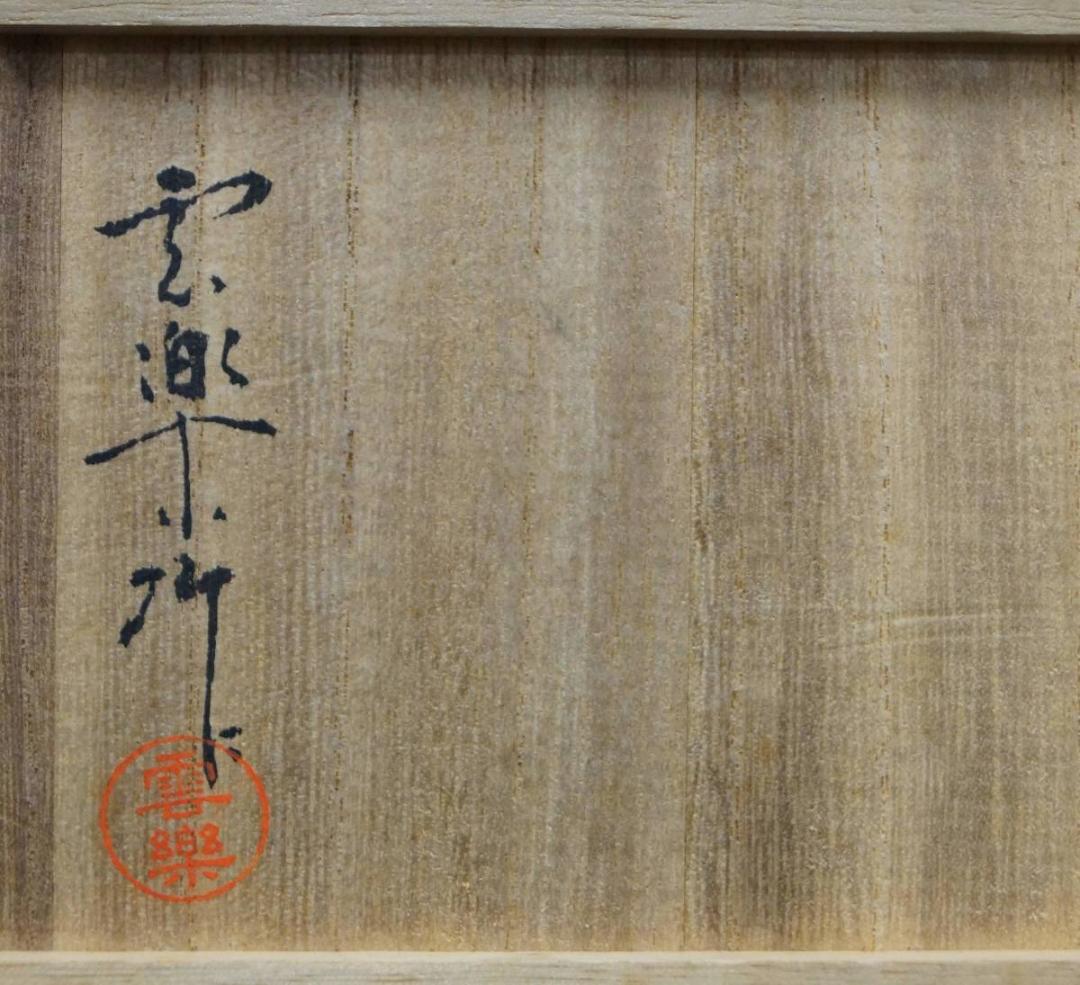 雲楽
雲樂